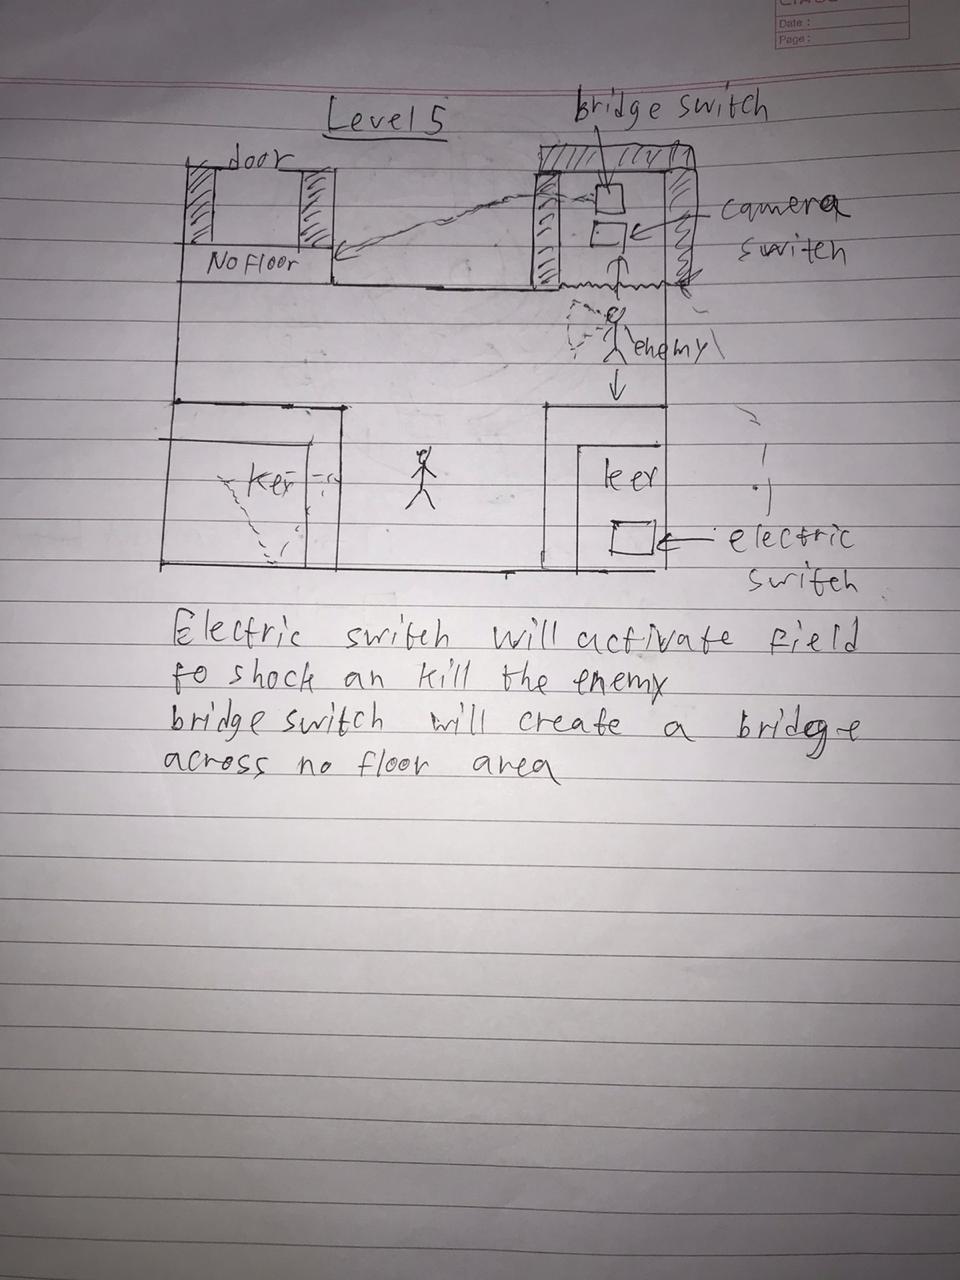 Date :
Page :
Level 5
bridge switch
door
camera
switch
No Floor
enemy
electric
switch
Electric switch will activate field
to shock an kill the enemy
bridge switch will create a bridege
across no floor area